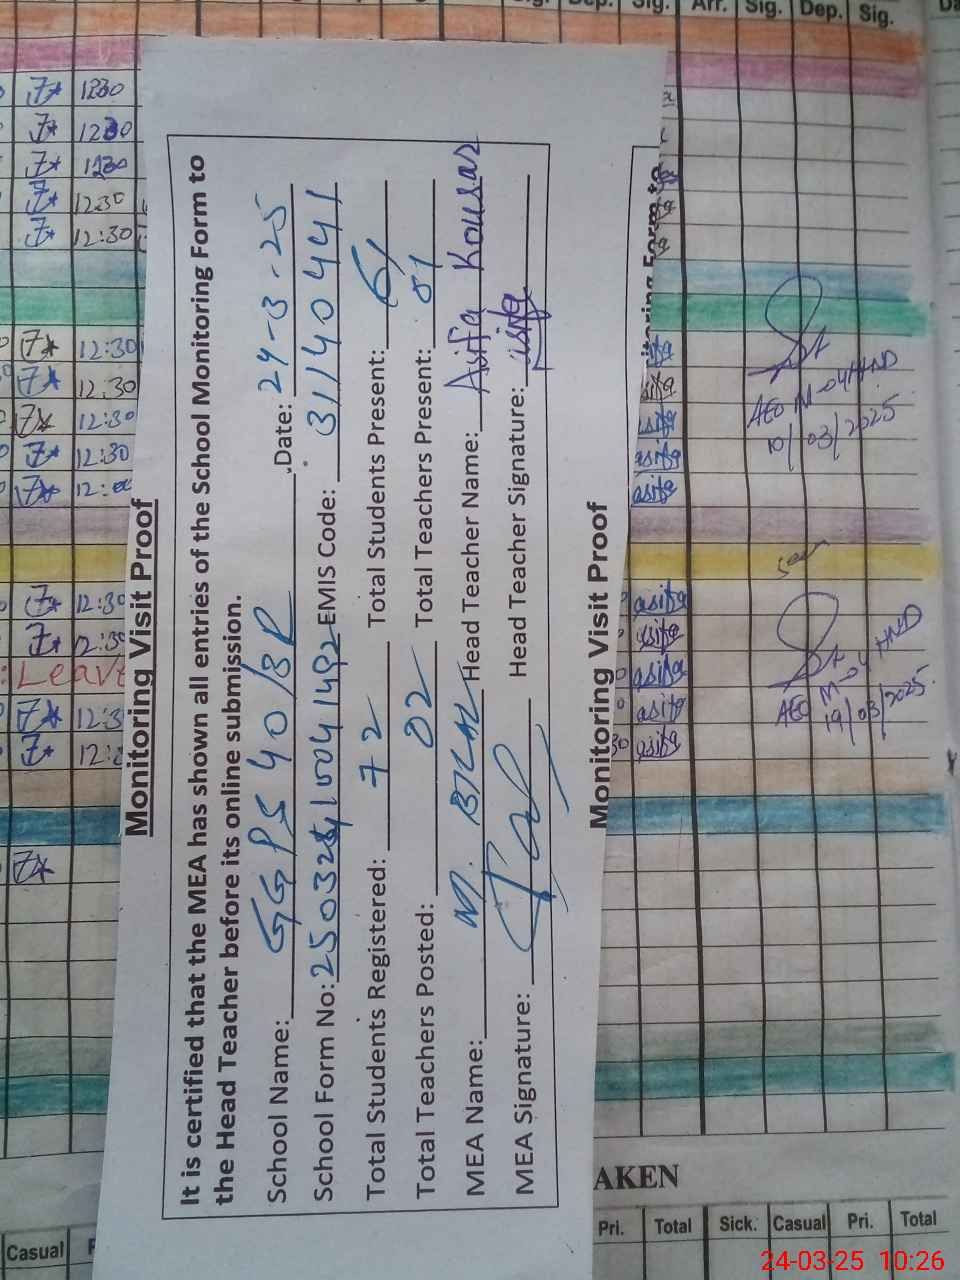 Monitoring Visit Proof
It is certified that the MEA has shown all entries of the School Monitoring Form to
the Head Teacher before its online submission.
School Name: GGPS 40/3R Date: 24-3-25
School Form No: EMIS Code: 31140441
Total Students Registered: 72 Total Students Present: 61
Total Teachers Posted: 02 Total Teachers Present: 01
MEA Name: M. BILAL Head Teacher Name: Asifa Kousar
MEA Signature: Head Teacher Signature: asifa
Monitoring Visit Proof
Arr. Sig. Dep. Sig.
12:30
12:30
12:30
12:30
12:30
12:30
12:30
12:30
12:30
Leave
asifa
asifa
asifa
asifa
asifa
asifa
AEO M-04 HND
10/03/2025
seen
AEO M-04 HND
19/03/2025
AKEN
Casual
Pri. Total Sick. Casual Pri. Total
24-03-25 10:26